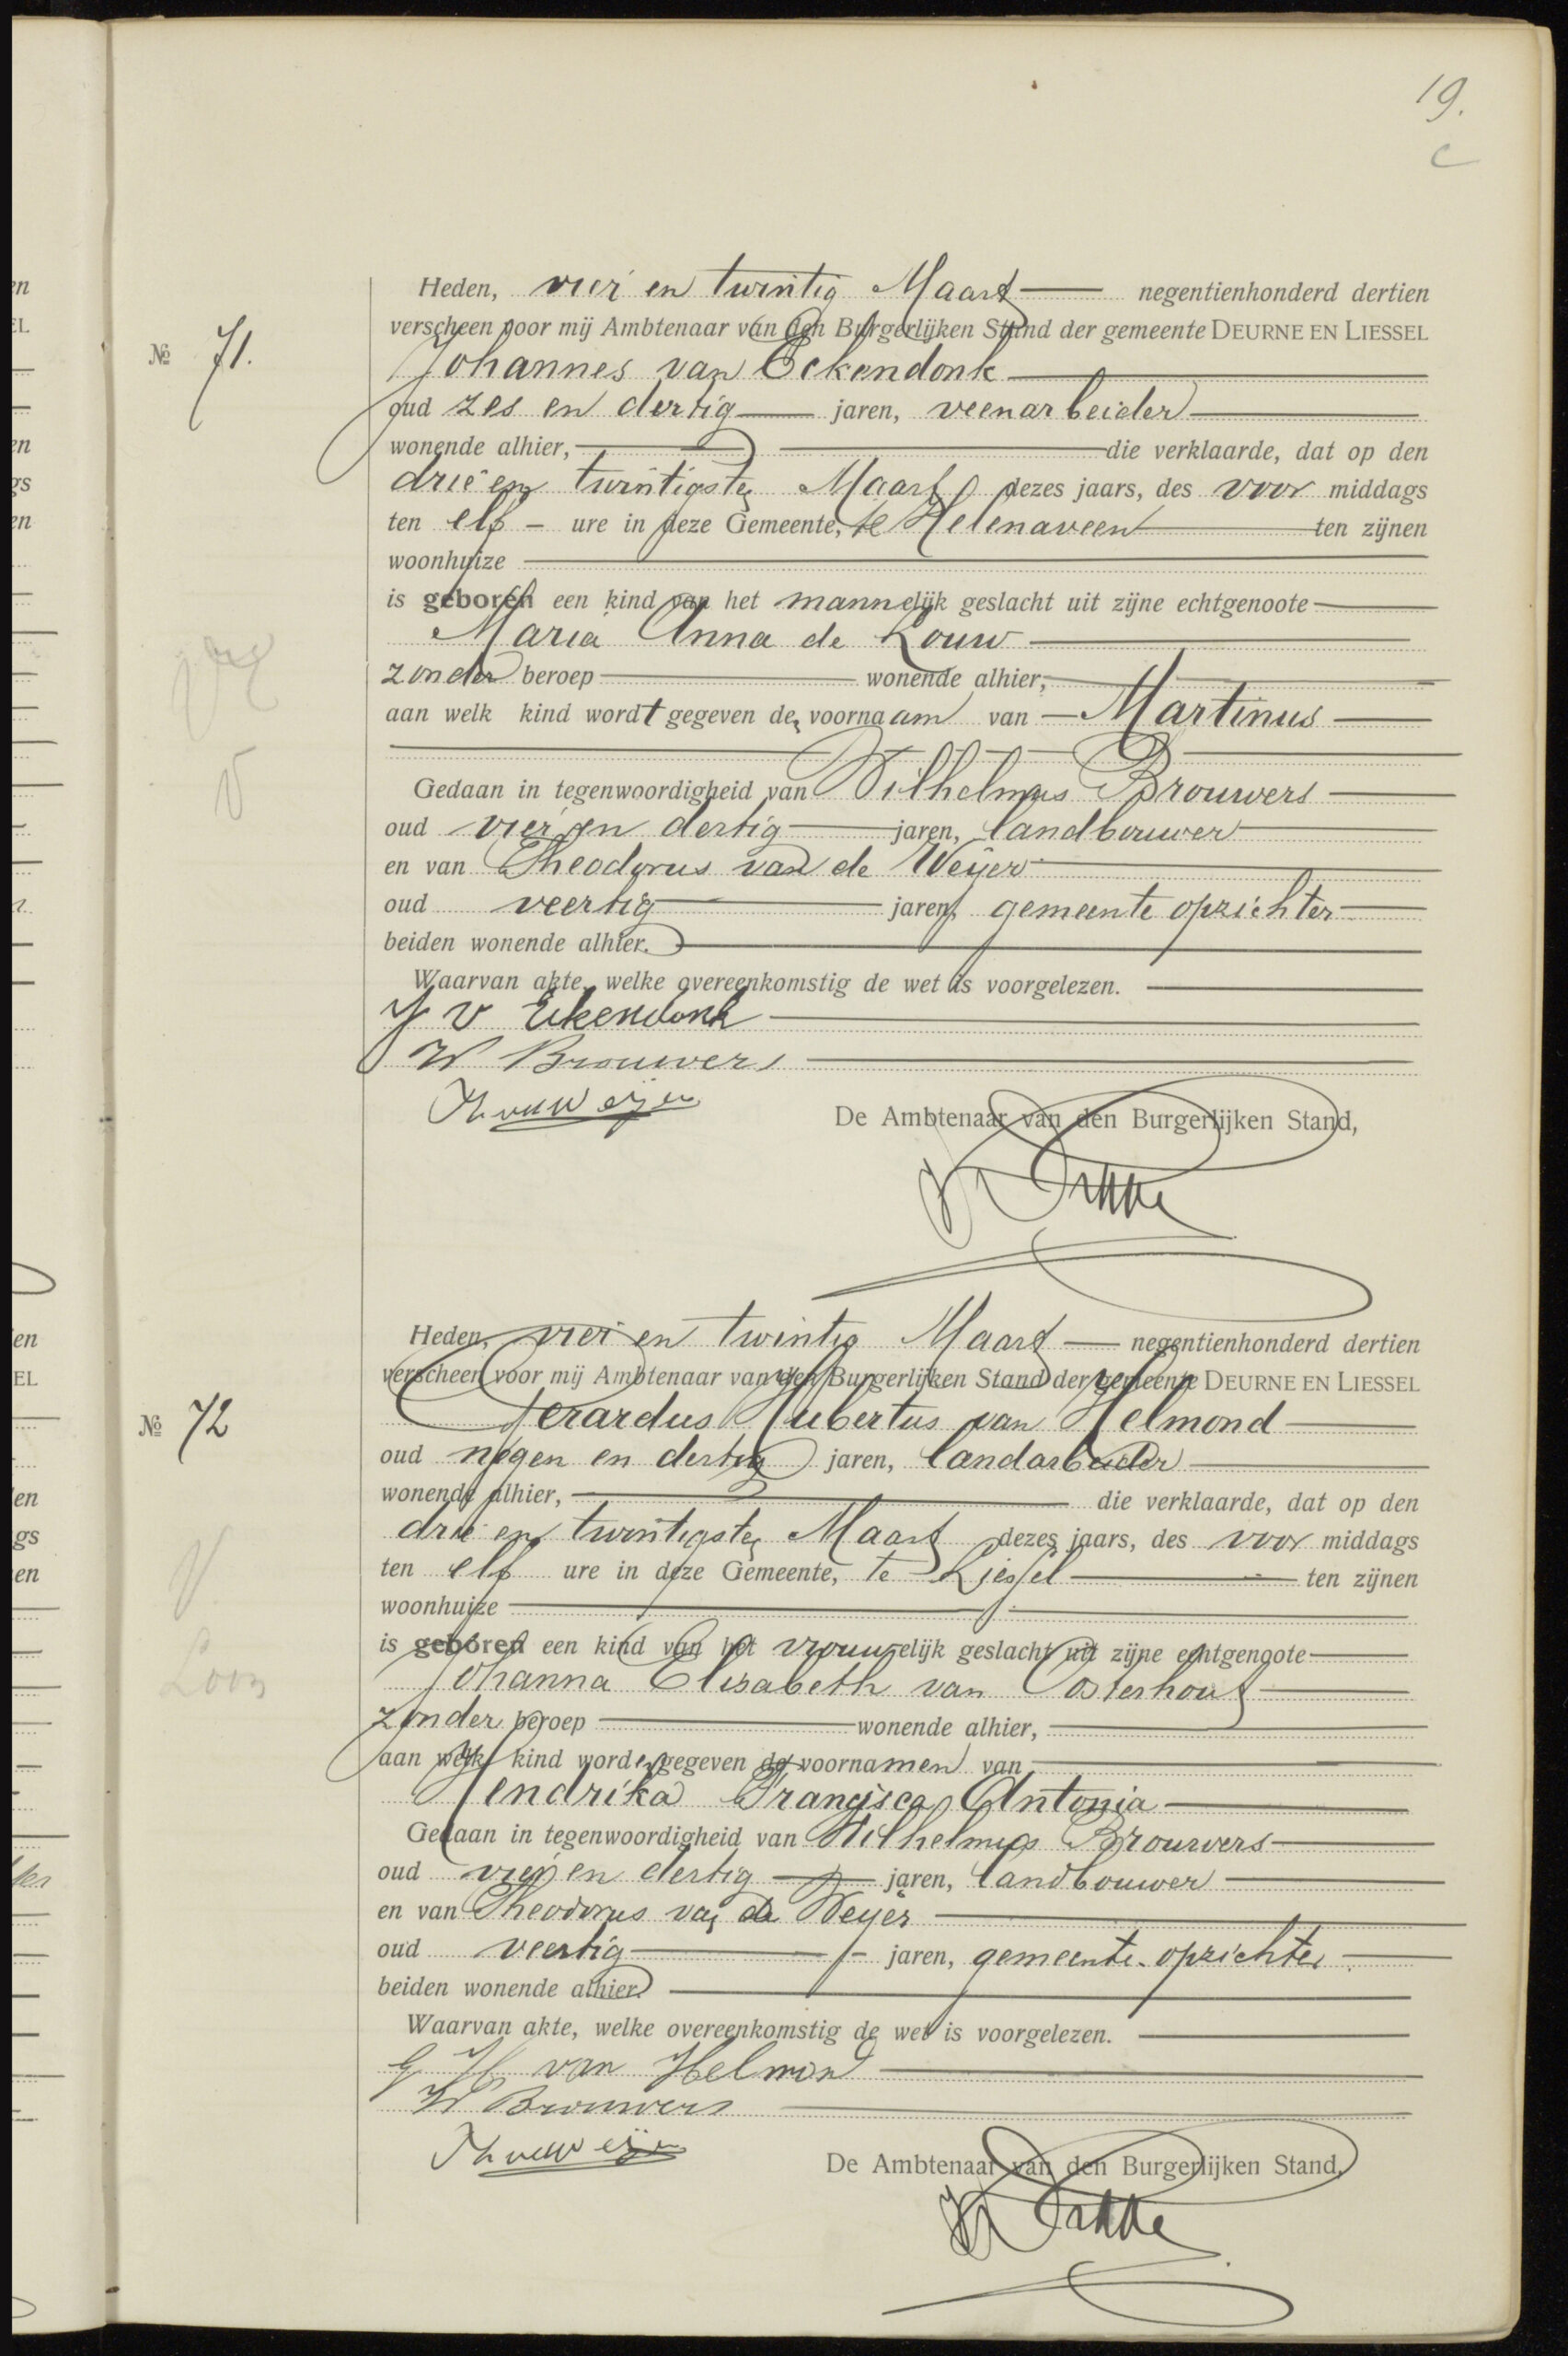 19.
c
Heden, vier en twintig Maart negentienhonderd dertien
verscheen voor mij Ambtenaar van den Burgerlijken Stand der gemeente DEURNE EN LIESSEL
№ 71.
Johannes van Eckendonk
oud zes en dertig jaren, veenarbeider
wonende alhier, die verklaarde, dat op den
drie en twintigsten Maart dezes jaars, des voor middags
ten elf ure in deze Gemeente, te Helenaveen ten zijnen
woonhuize
is geboren een kind van het mannelijk geslacht uit zijne echtgenoote
Maria Anna de Louw
zonder beroep wonende alhier,
aan welk kind wordt gegeven de voornaam van Martinus
Gedaan in tegenwoordigheid van Wilhelmus Brouwers
oud vier en dertig jaren, landbouwer
en van Theodorus van de Weijer
oud veertig jaren, gemeente opzichter
beiden wonende alhier.
Waarvan akte, welke overeenkomstig de wet is voorgelezen.
J v Eikendonk
W Brouwers
De Ambtenaar van den Burgerlijken Stand,
Heden, vier en twintig Maart negentienhonderd dertien
verscheen voor mij Ambtenaar van den Burgerlijken Stand der gemeente DEURNE EN LIESSEL
№ 72
Gerardus Hubertus van Helmond
oud negen en dertig jaren, landarbeider
wonende alhier, die verklaarde, dat op den
drie en twintigsten Maart dezes jaars, des voor middags
ten elf ure in deze Gemeente, te Liessel ten zijnen
woonhuize
is geboren een kind van het vrouwelijk geslacht uit zijne echtgenoote
Loon
Johanna Elisabeth van Oosterhout
zonder beroep wonende alhier,
aan welk kind worden gegeven de voornamen van
Hendrika Francisca Antonia
Gedaan in tegenwoordigheid van Wilhelmus Brouwers
oud vier en dertig jaren, landbouwer
en van Theodorus van de Weijer
oud veertig jaren, gemeente-opzichter
beiden wonende alhier.
Waarvan akte, welke overeenkomstig de wet is voorgelezen.
G H van Helmond
W Brouwers
De Ambtenaar van den Burgerlijken Stand,